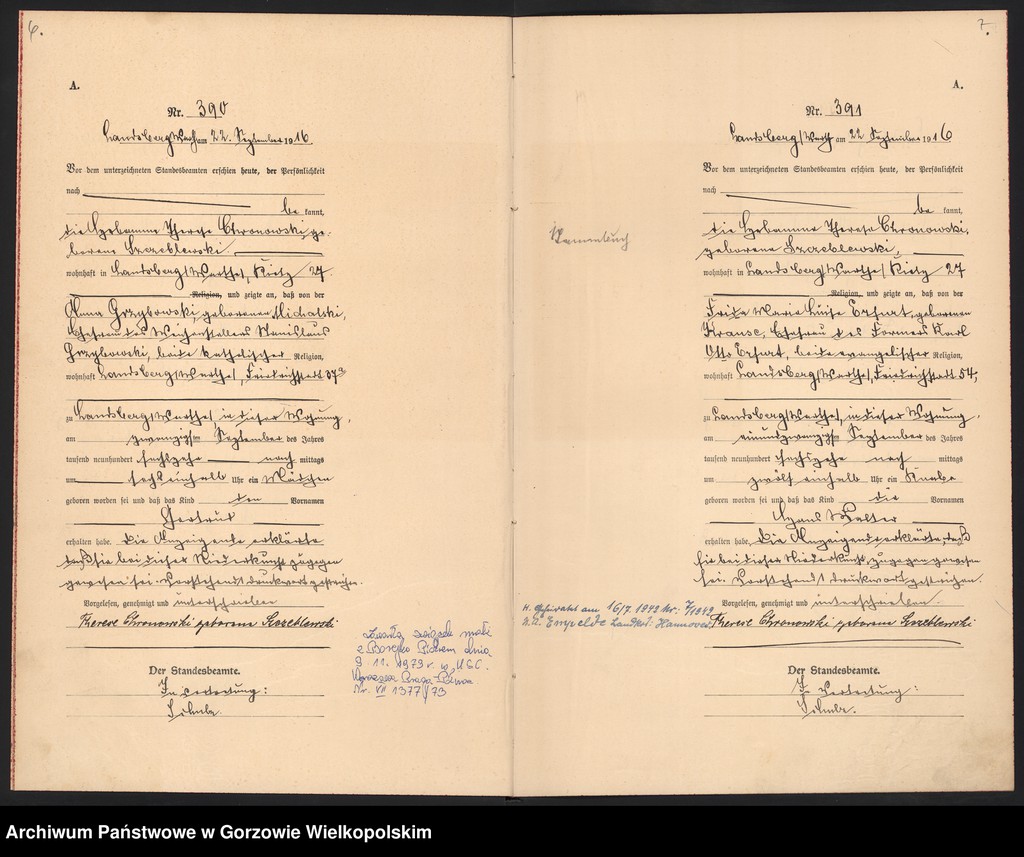 6.
A.
Nr. 390
Landsberg/Warthe am 22. September 1916.
Vor dem unterzeichneten Standesbeamten erschien heute, der Persönlichkeit
nach
be kannt,
die Hebamme Therese Chronowski, ge-
borene Szczeblewski
wohnhaft in Landsberg/Warthe, Kietz 27
Religion, und zeigte an, daß von der
Anna Grzybowski, geborenen Michalski,
Ehefrau des Weichenstellers Stanislaus
Grzybowski, beide katholischer Religion,
wohnhaft Landsberg/Warthe, Friedrichstadt 37a
zu Landsberg/Warthe, in dieser Wohnung,
am zwanzigsten September des Jahres
tausend neunhundert sechszehn nach mittags
um sechseinhalb Uhr ein Mädchen
geboren worden sei und daß das Kind den Vornamen
Gertrud
erhalten habe. Die Anzeigende erklärte,
daß sie bei dieser Niederkunft zugegen
gewesen sei. Vorstehend 1 Druckwort gestrichen.
Vorgelesen, genehmigt und unterschrieben
Therese Chronowski geborene Szczeblewski
Der Standesbeamte.
In Vertretung:
Zawarła związek małż.
z dnia
9.11.1973 r. w USC.
Warszawa Praga-Północ
Nr. VII 1377/73
7.
A.
Nr. 391
Landsberg/Warthe am 22 September 1916
Vor dem unterzeichneten Standesbeamten erschien heute, der Persönlichkeit
nach
be kannt,
die Hebamme Therese Chronowski,
geborene Szczeblewski,
wohnhaft in Landsberg/Warthe, Kietz 27
Religion, und zeigte an, daß von der
Frida Marie Luise Erfurt, geborenen
Krause, Ehefrau des Formers Karl
Otto Erfurt, beide evangelischer Religion,
wohnhaft Landsberg/Warthe, Friedrichstadt 54,
zu Landsberg/Warthe, in dieser Wohnung,
am einundzwanzigsten September des Jahres
tausend neunhundert sechszehn nach mittags
um zwölf einhalb Uhr ein Knabe
geboren worden sei und daß das Kind die Vornamen
Hans Walter
erhalten habe. Die Anzeigende erklärte, daß
sie bei dieser Niederkunft zugegen gewesen
sei. Vorstehend 1 Druckwort gestrichen.
Vorgelesen, genehmigt und unterschrieben.
Therese Chronowski geborene Szczeblewski
Der Standesbeamte.
In Vertretung:
Stammbuch
H. Geheiratet am 16/7. 1949 Nr. 7/1949
St.A. Empelde Landkr. Hannover.
Archiwum Państwowe w Gorzowie Wielkopolskim